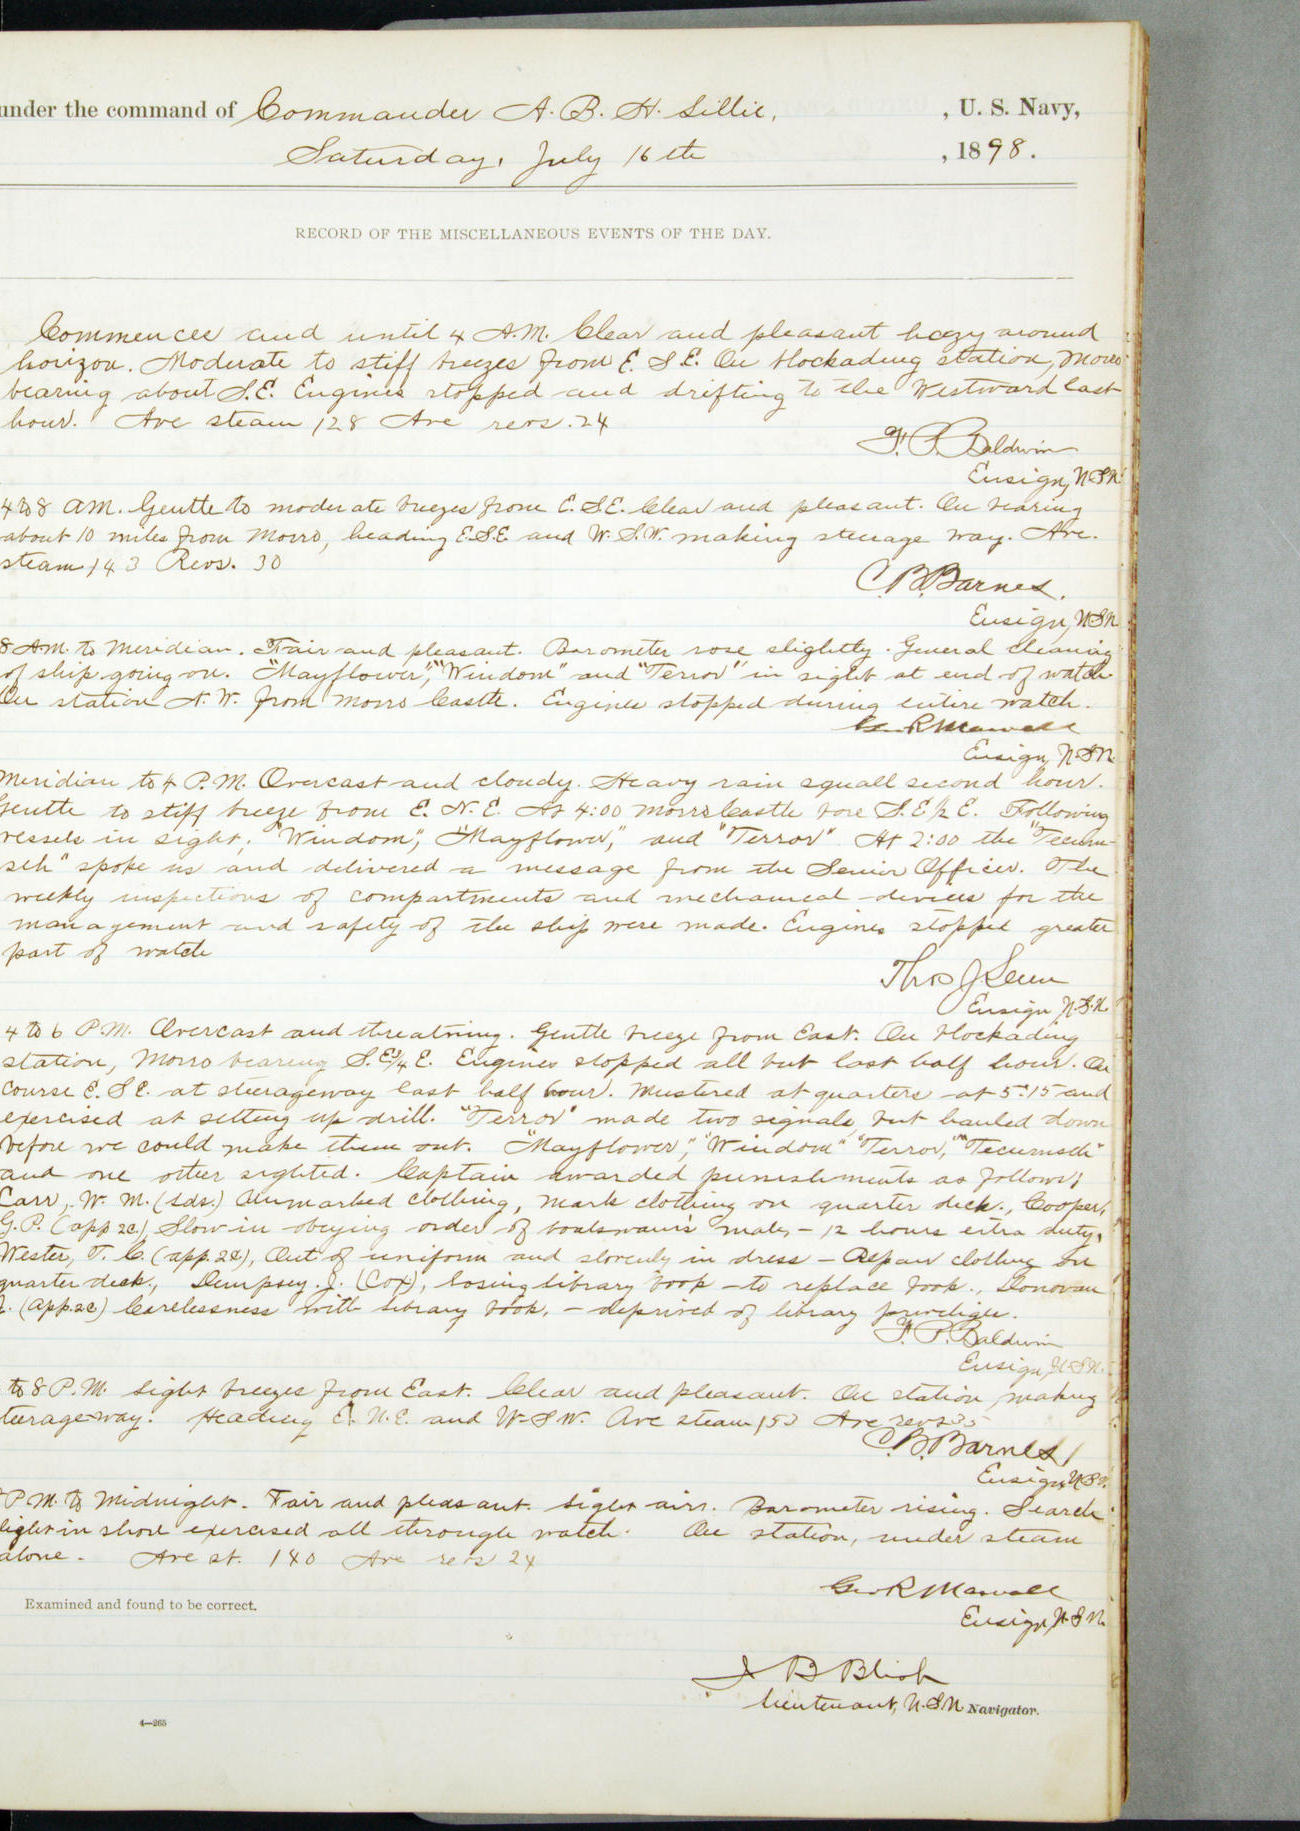 under the command of Commander A. B. H. Lillie, , U. S. Navy,
Saturday, July 16th , 1898.
RECORD OF THE MISCELLANEOUS EVENTS OF THE DAY.
Commences and until 4 A.M. Clear and pleasant hazy around
horizon. Moderate to stiff breezes from E. S E. On blockading station, Morro
bearing about S.E. Engines stopped and drifting to the Westward last
hour. Ave steam 128 Ave revs. 24
F. P. Baldwin
Ensign, U S N
4 to 8 AM. Gentle to moderate breezes from E. S.E. Clear and pleasant. On bearing
about 10 miles from Morro, heading E.S.E. and W. S.W. making steerage way. Ave.
steam 143 Revs. 30
C. B. Barnes.
Ensign, U S N
8 A.M. to Meridian. Fair and pleasant. Barometer rose slightly. General cleaning
of ship going on. "Mayflower", "Windom" and "Terror" in sight at end of watch.
On station N. W. from Morro Castle. Engines stopped during entire watch.
Geo R Marvell
Ensign U.S.N.
Meridian to 4 P.M. Overcast and cloudy. Heavy rain squall second hour.
Gentle to stiff breeze from E. N. E. At 4:00 Morro Castle bore S. E 1/2 E. Following
vessels in sight; "Windom", "Mayflower", and "Terror". At 2:00 the "Tecum-
seh" spoke us and delivered a message from the Senior Officer. The
weekly inspections of compartments and mechanical devices for the
management and safety of the ship were made. Engines stopped greater
part of watch
Thos J Senn
Ensign U.S.N.
4 to 6 P.M. Overcast and threatning. Gentle breeze from East. On blockading
station, Morro bearing S. E 3/4 E. Engines stopped all but last half hour. On
course E. S E. at steerageway last half hour. Mustered at quarters at 5:15 and
exercised at setting up drill. "Terror" made two signals, but hauled down
before we could make them out. "Mayflower", "Windom" "Terror," "Tecumseh"
and one other sighted. Captain awarded punishments as follows;
Carr, W. M. (Lds.) Unmarked clothing, mark clothing on quarter deck., Cooper,
G. P. (app 2c.), Slow in obeying order of boatswain's mate, – 12 hours extra duty,
Wester, T. C. (app. 2c), Out of uniform and slovenly in dress – Repair clothing on
quarter deck., Dempsey. J. (Cox), losing library book – to replace book., Donovan
J. (App. 2c) Carelessness with library book, – deprived of library privilige.
F. P. Baldwin
Ensign, U.S.N.
to 8 P.M. Light breezes from East. Clear and pleasant. On station, making
teerageway. Heading E. N. E. and W-S W. Ave steam 153 Ave revs 35
C. B. Barnes
Ensign, U S N.
P.M. to Midnight. Fair and pleasant. Light airs. Barometer rising. Search
light in shore exercised all through watch. On station, under steam
alone. Ave st. 140 Ave revs 24
Geo R Marvell
Ensign, U. S N.
Examined and found to be correct.
J B Blish
Lieutenant, U.S.N. Navigator.
4—265